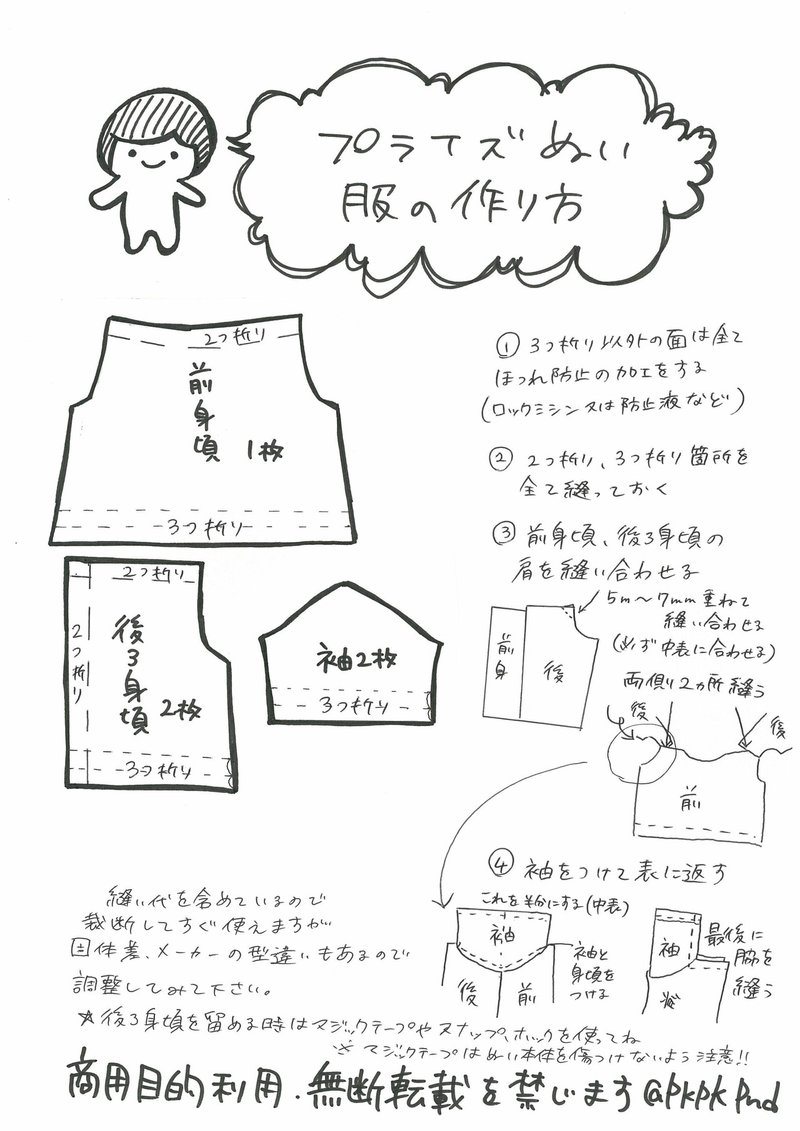 プライズぬい
服の作り方
2つ折り
前身頃 1枚
3つ折り
2つ折り
2つ折り
後ろ身頃 2枚
3つ折り
袖2枚
3つ折り
① 3つ折り以外の面は全て
ほつれ防止の加工をする
(ロックミシン又は防止液など)
② 2つ折り、3つ折り箇所を
全て縫っておく
③ 前身頃、後ろ身頃の
肩を縫い合わせる
5m〜7mm重ねて
縫い合わせる
(必ず中表に合わせる)
前身
後
両側2ヵ所縫う
後
後
前
④ 袖をつけて表に返す
これを半分にする(中表)
袖
後
前
袖と
身頃を
つける
袖
後
最後に
脇を
縫う
縫い代を含めているので
裁断してすぐ使えますが
固体差、メーカーの型違いもあるので
調整してみて下さい。
☆後ろ身頃を留める時はマジックテープやスナップ、ホックを使ってね
※マジックテープはぬい本体を傷つけないよう注意!!
商用目的利用・無断転載を禁じます@PKPK